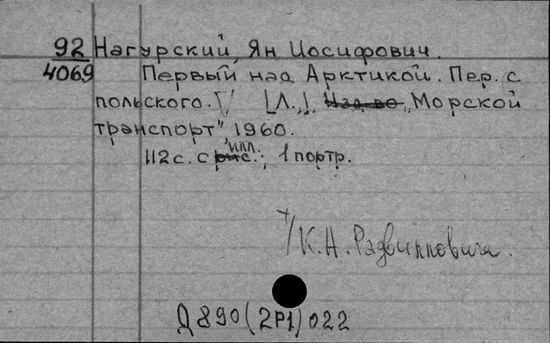 92 Нагурский, Ян Иосифович.
4069 Первый над Арктикой. Пер. с
польского. [Л.,] Изд-во „Морской
транспорт" 1960.
112 с. с рис. илл.; 1 портр.
К. Н. Радвилловича.
Д890(2Р1)022